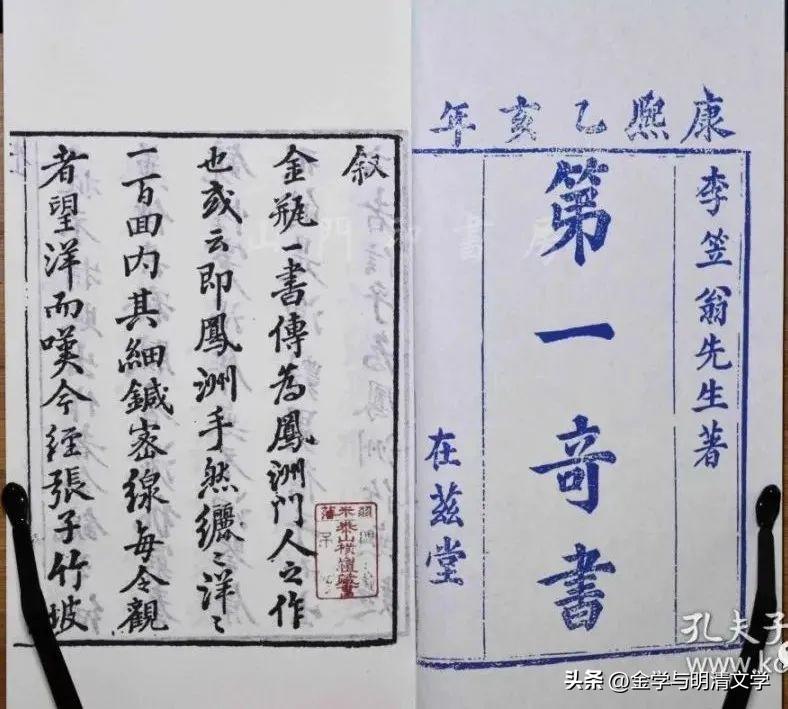 康熙乙亥年
李笠翁先生著
第一奇書
在茲堂
叙
金瓶一書傳為鳳洲門人之作
也或云即鳳洲手然纚〻洋〻
一百回内其細鍼密線每令觀
者望洋而嘆今經張子竹坡
孔夫子
www.k
头条 @金学与明清文学